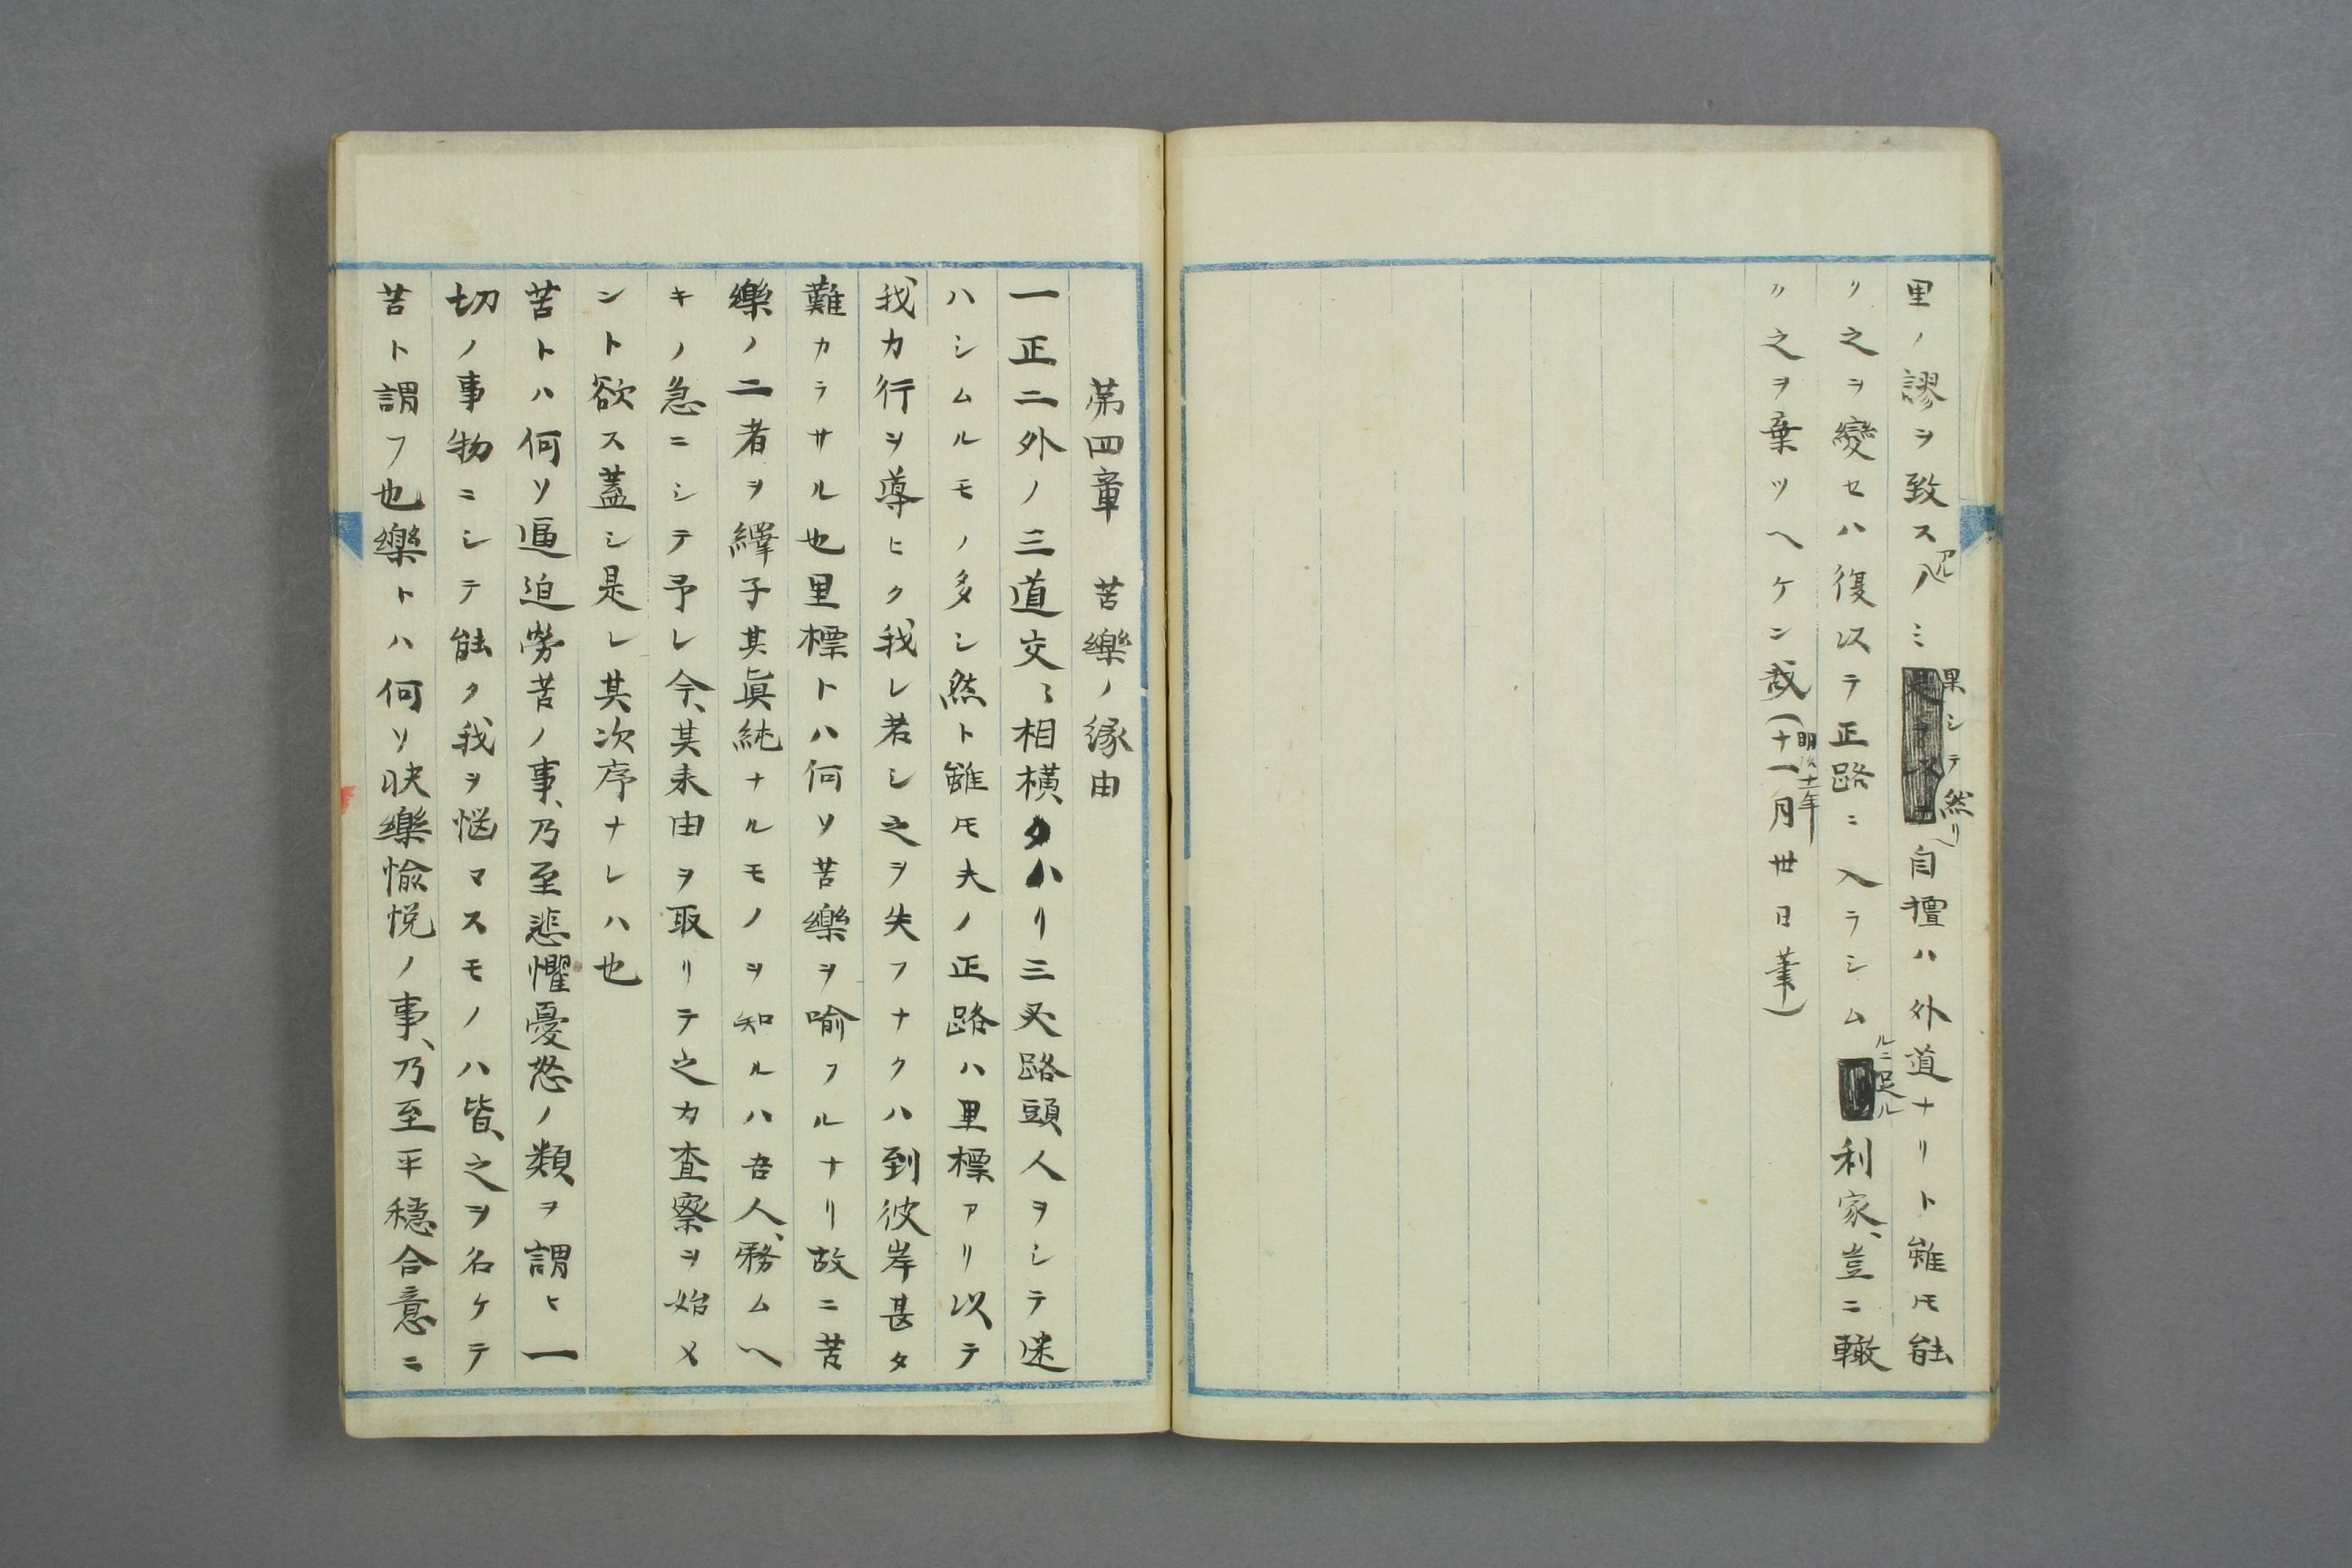 里ノ謬ヲ致スアルノミ果シテ然リ自擅ハ外道ナリト雖𪜈能
ク之ヲ變セハ復以テ正路ニ入ラシムルニ足ル利家、豈ニ轍
ク之ヲ棄ツヘケン哉(明治十一年十一月卅日筆)
第四章　苦樂ノ縁由
一正二外ノ三道交々相横タハリ三叉路頭人ヲシテ迷
ハシムルモノ多シ然ト雖𪜈夫ノ正路ハ里標アリ以テ
我カ行ヲ導ヒク我レ若シ之ヲ失フナクハ到彼岸甚タ
難カラサル也里標トハ何ソ苦樂ヲ喩フルナリ故ニ苦
樂ノ二者ヲ繹子其眞純ナルモノヲ知ルハ吾人、務ムヘ
キノ急ニシテ予レ今、其来由ヲ取リテ之カ査察ヲ始メ
ント欲ス蓋シ是レ其次序ナレハ也
苦トハ何ソ逼迫勞苦ノ事、乃至悲懼憂愁ノ類ヲ謂ヒ一
切ノ事物ニシテ能ク我ヲ悩マスモノハ皆、之ヲ名ケテ
苦ト謂フ也樂トハ何ソ快樂愉悦ノ事、乃至平穏合意ニ